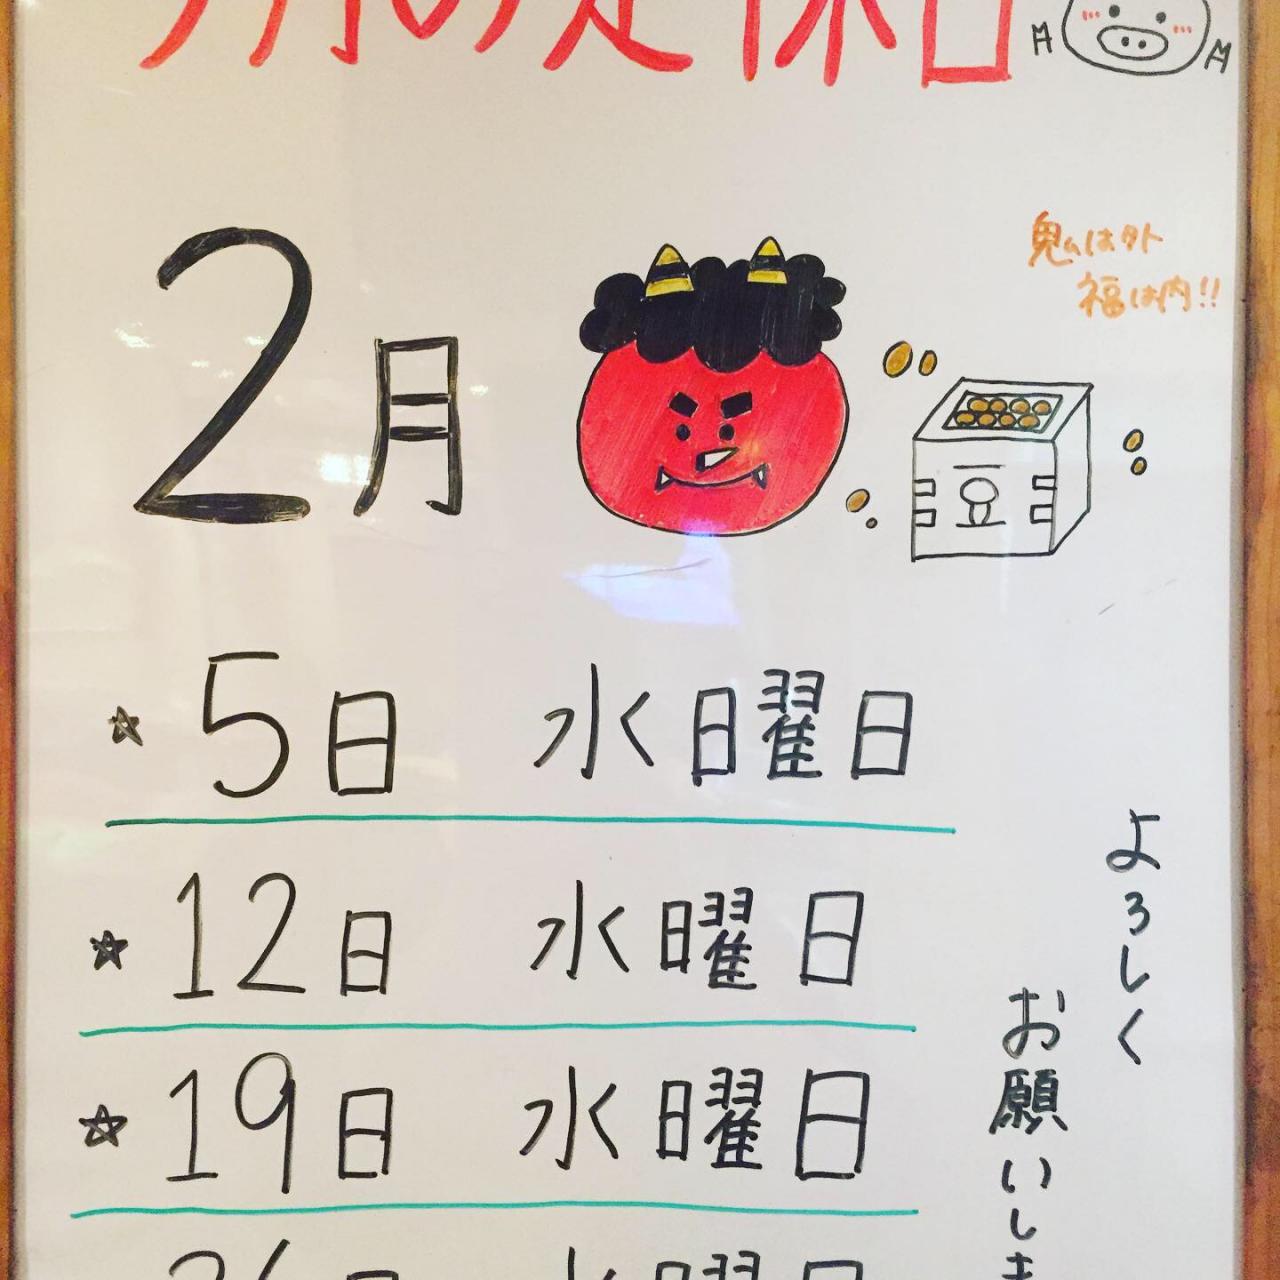 今月の定休日
鬼は外
福は内!!
2月
豆
☆ 5日 水曜日
☆ 12日 水曜日
☆ 19日 水曜日
26日 水曜日
よろしく
お願いしま